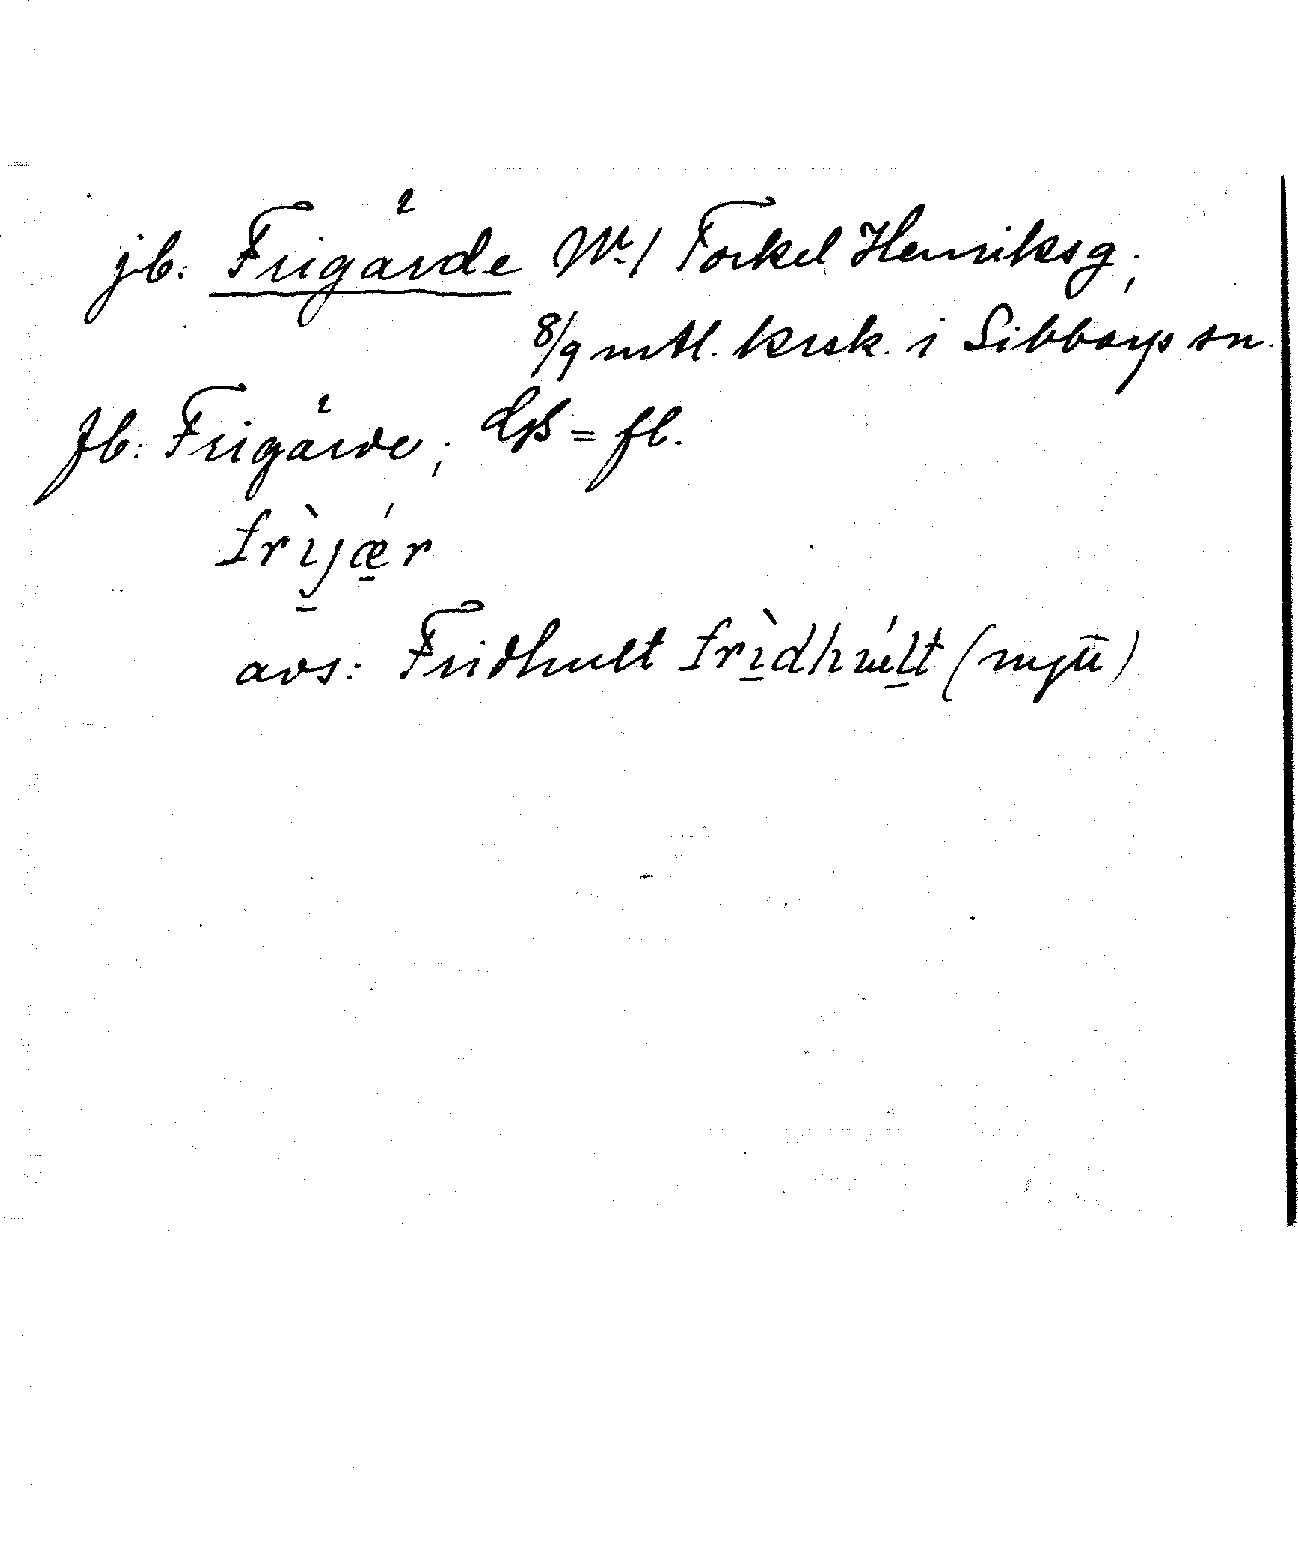 jb. Frigärde Nr 1 Torkel Henriksg;
8/9 mtl. krsk. i Sibbarps sn.
Jb: Frigärde; = fl.
frìjǽr
avs: Fridhult frìdhúlt (nytt)